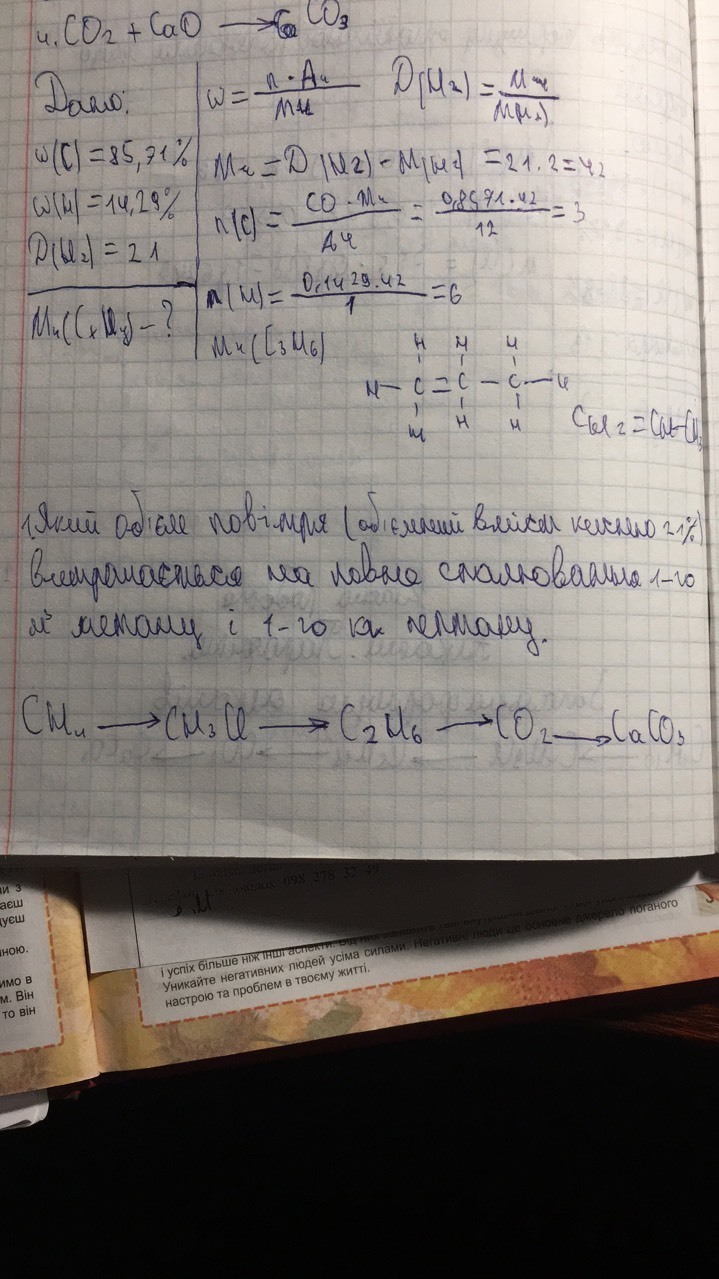 4. CO2 + CaO → CaCO3
Дано:
w(C) = 85,71%
w(H) = 14,29%
D(H2) = 21
Mr(CxHy) – ?
w = n · Ar / Mr
D(H2) = Mr / M(H2)
Mr = D(H2) · M(H2) = 21 · 2 = 42
n(C) = ω · Mr / Ar = 0,8571 · 42 / 12 = 3
n(H) = 0,1429 · 42 / 1 = 6
Mr(C3H6)
H H H
H – C = C – C – H
H H H
CH2 = CH–CH3
1. Який обієм повітря (обіємний вміст кисню 21%)
витрачається на повне спалювання 1-го
м³ метану і 1-го кг
CH4 → CH3Cl → C2H6 → CO2 → CaCO3
098 278 32 49
і успіх більше ніж інші аспекти.
основне джерело поганого
Уникайте негативних людей усіма силами. Негативні люди це
настрою та проблем в твоєму житті.
ми з
аєш
дуєш
ною.
имо в
м. Він
то він